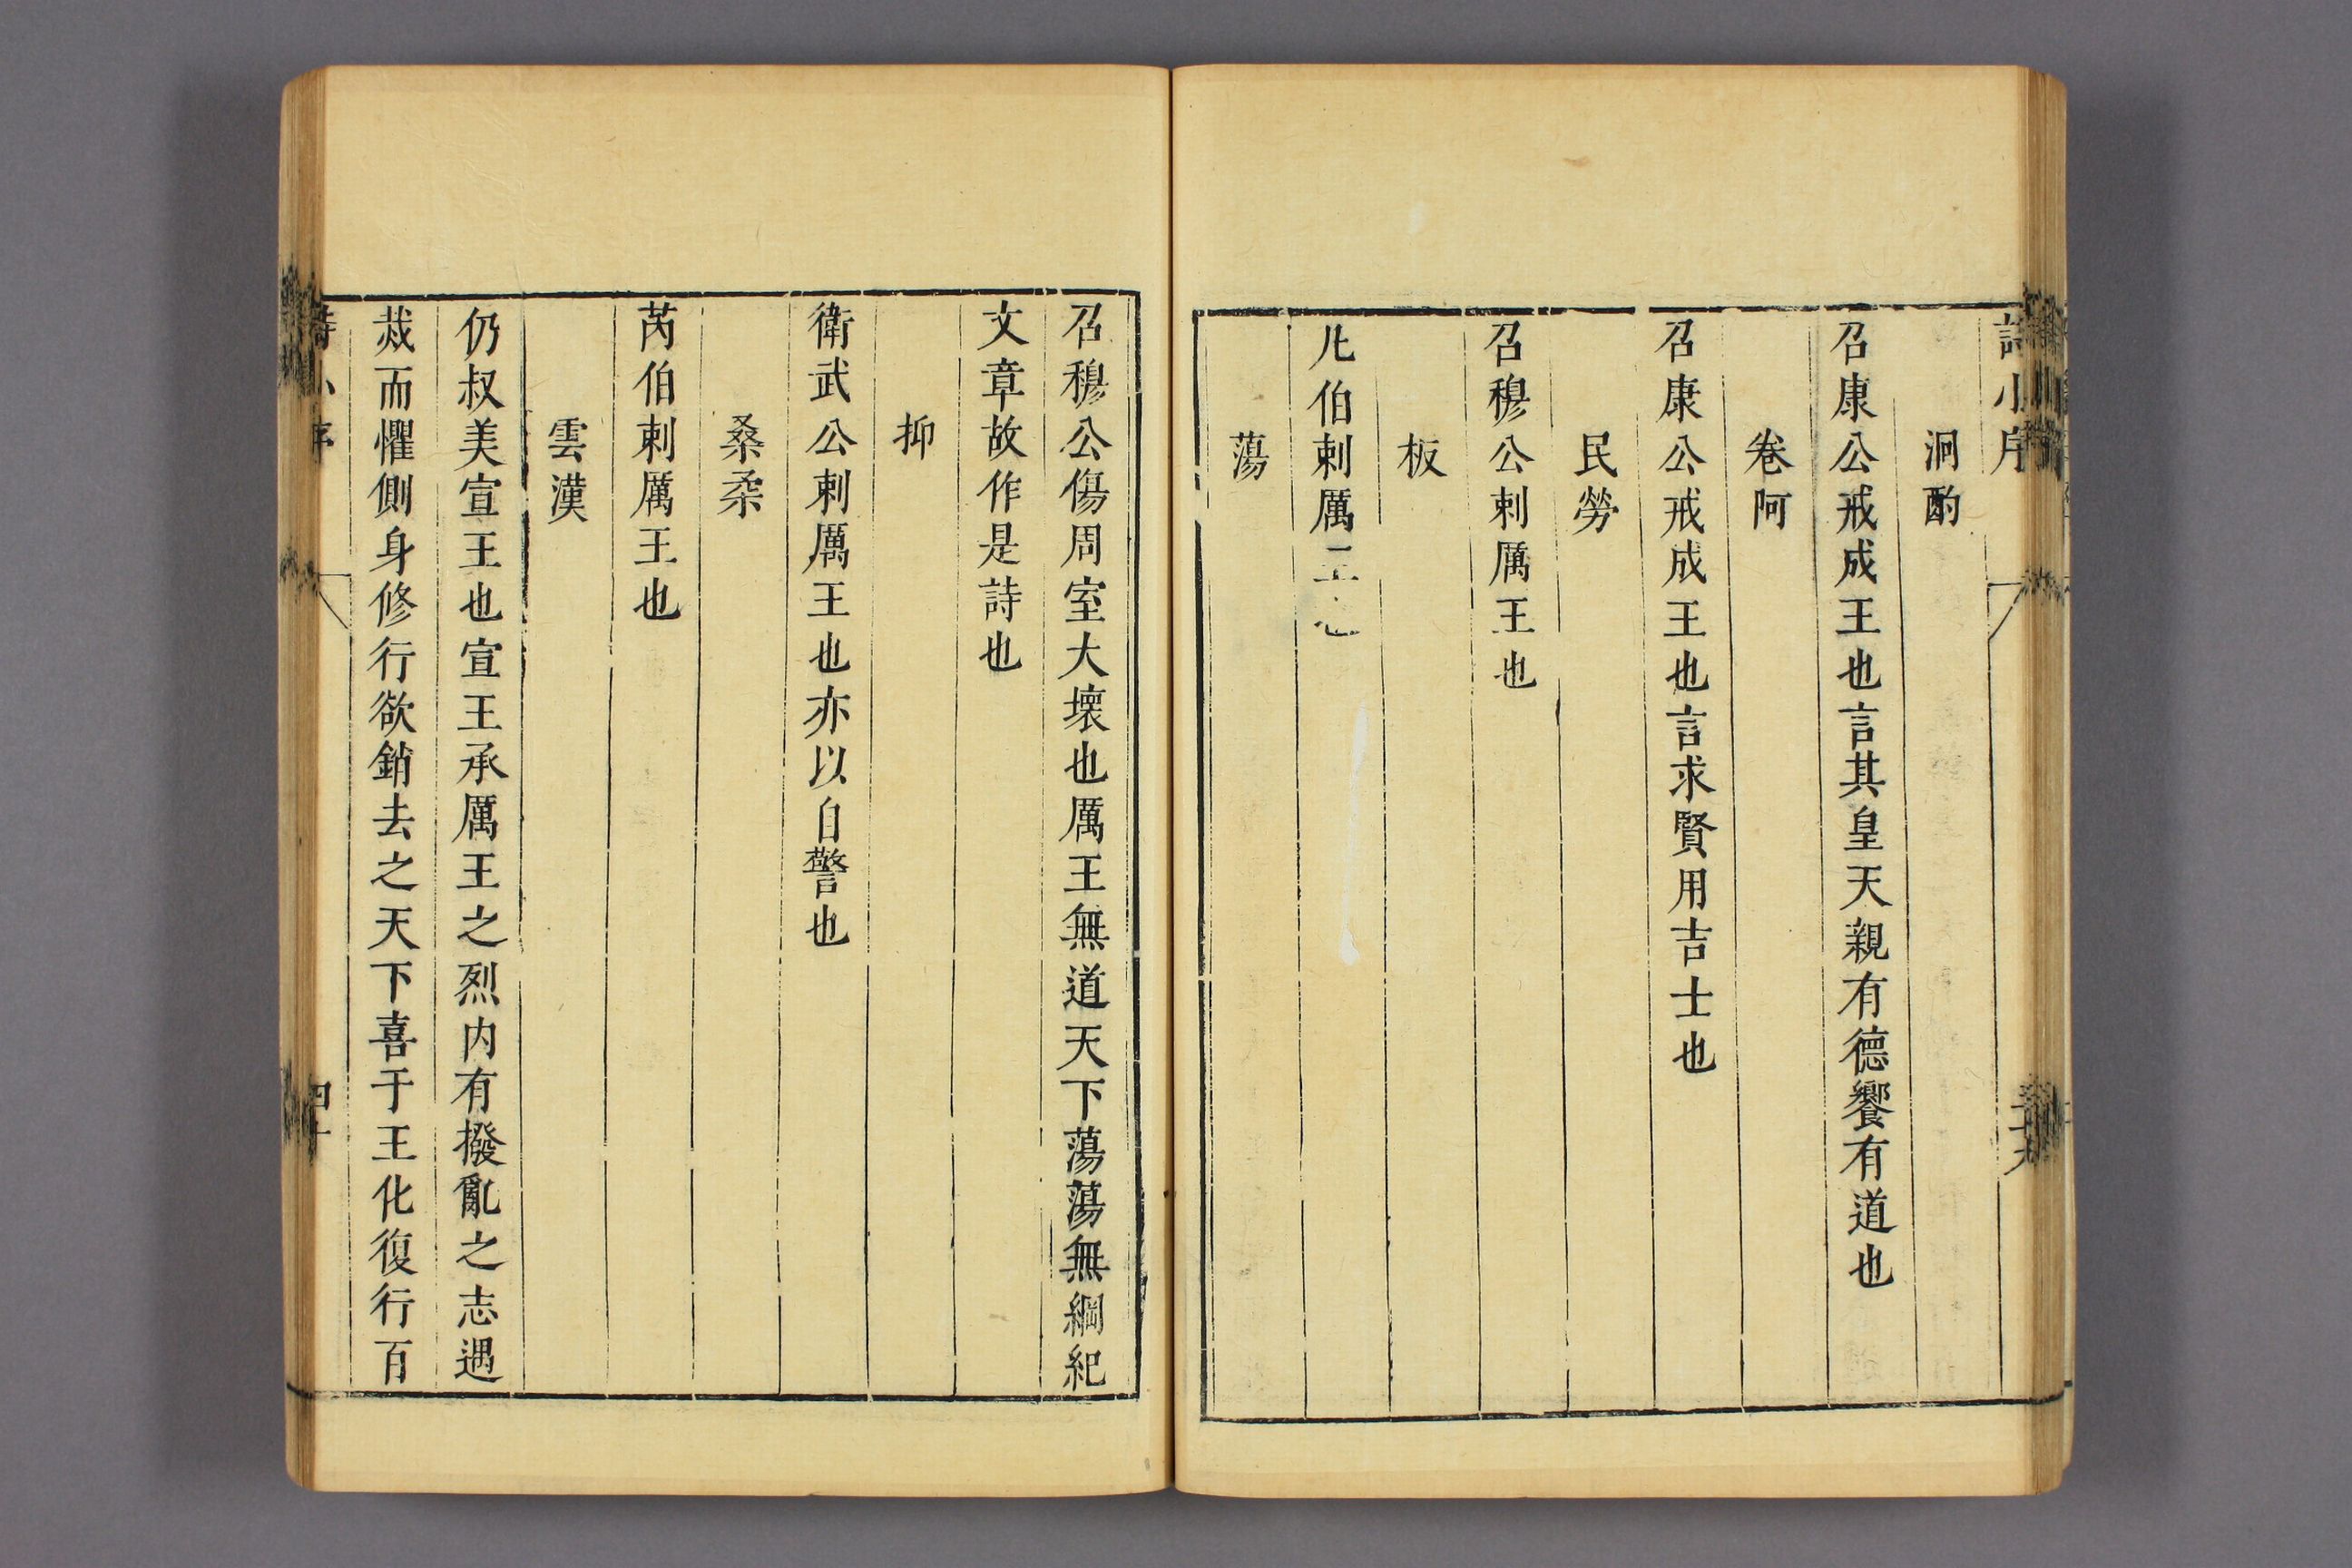 詩小序
泂酌
召康公戒成王也言其皇天親有德饗有道也
卷阿
召康公戒成王也言求賢用吉士也
民勞
召穆公刺厲王也
板
凡伯刺厲王也
蕩
召穆公傷周室大壞也厲王無道天下蕩蕩無綱紀
文章故作是詩也
抑
衛武公刺厲王也亦以自警也
桑柔
芮伯刺厲王也
雲漢
仍叔美宣王也宣王承厲王之烈内有撥亂之志遇
烖而懼側身修行欲銷去之天下喜于王化復行百
詩小序
四十